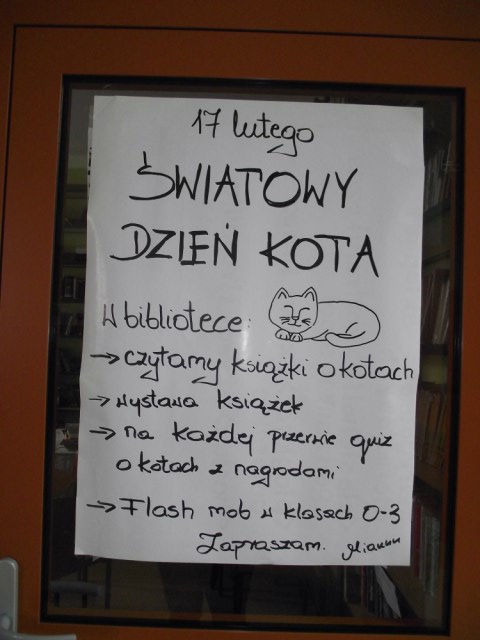 17 lutego
ŚWIATOWY
DZIEŃ KOTA
W bibliotece:
→ czytamy książki o kotach
→ wystawa książek
→ na każdej przerwie quiz
o kotach z nagrodami
→ Flash mob w klasach 0-3
Zapraszam.